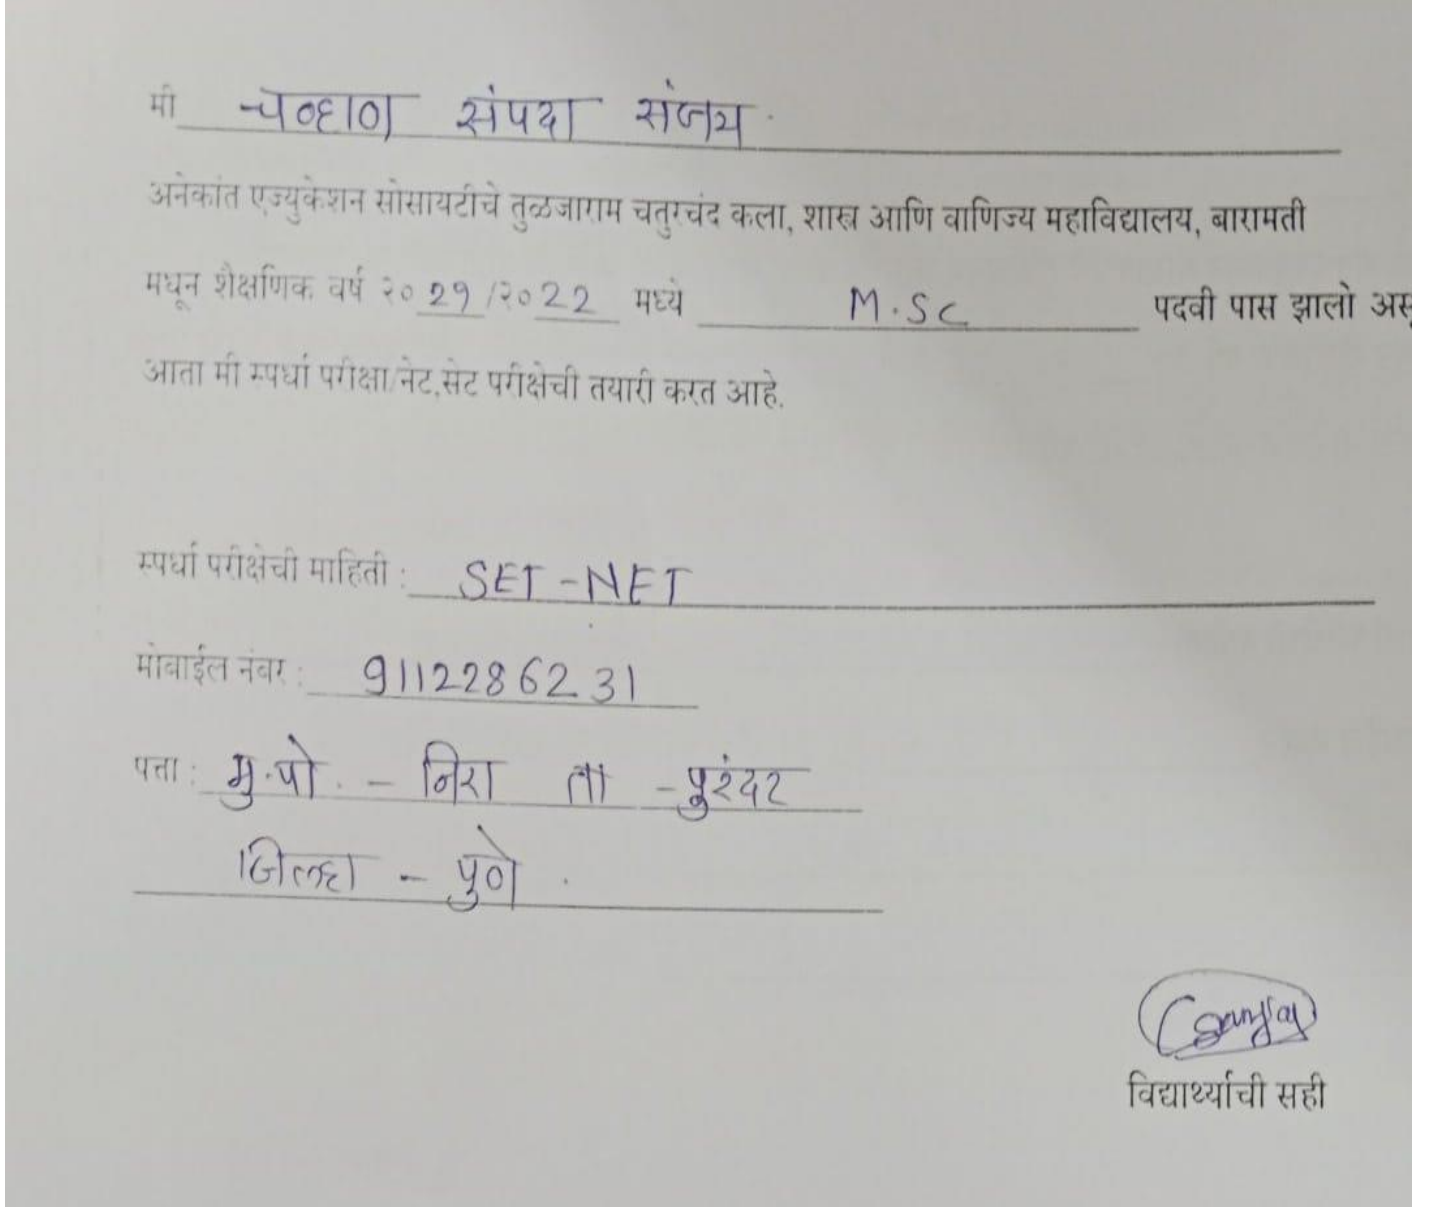 मी चव्हाण संपदा संजय
अनेकांत एज्युकेशन सोसायटीचे तुळजाराम चतुरचंद कला, शास्त्र आणि वाणिज्य महाविद्यालय, बारामती
मधून शैक्षणिक वर्ष २० २१ /२० 22 मध्ये M.SC पदवी पास झालो असू
आता मी स्पर्धा परीक्षा/नेट,सेट परीक्षेची तयारी करत आहे.
स्पर्धा परीक्षेची माहिती : SET-NET
मोबाईल नंबर : 9112286231
पत्ता : मु.पो. - निरा ता - पुरंदर
जिल्हा - पुणे .
Sanjay
विद्यार्थ्याची सही